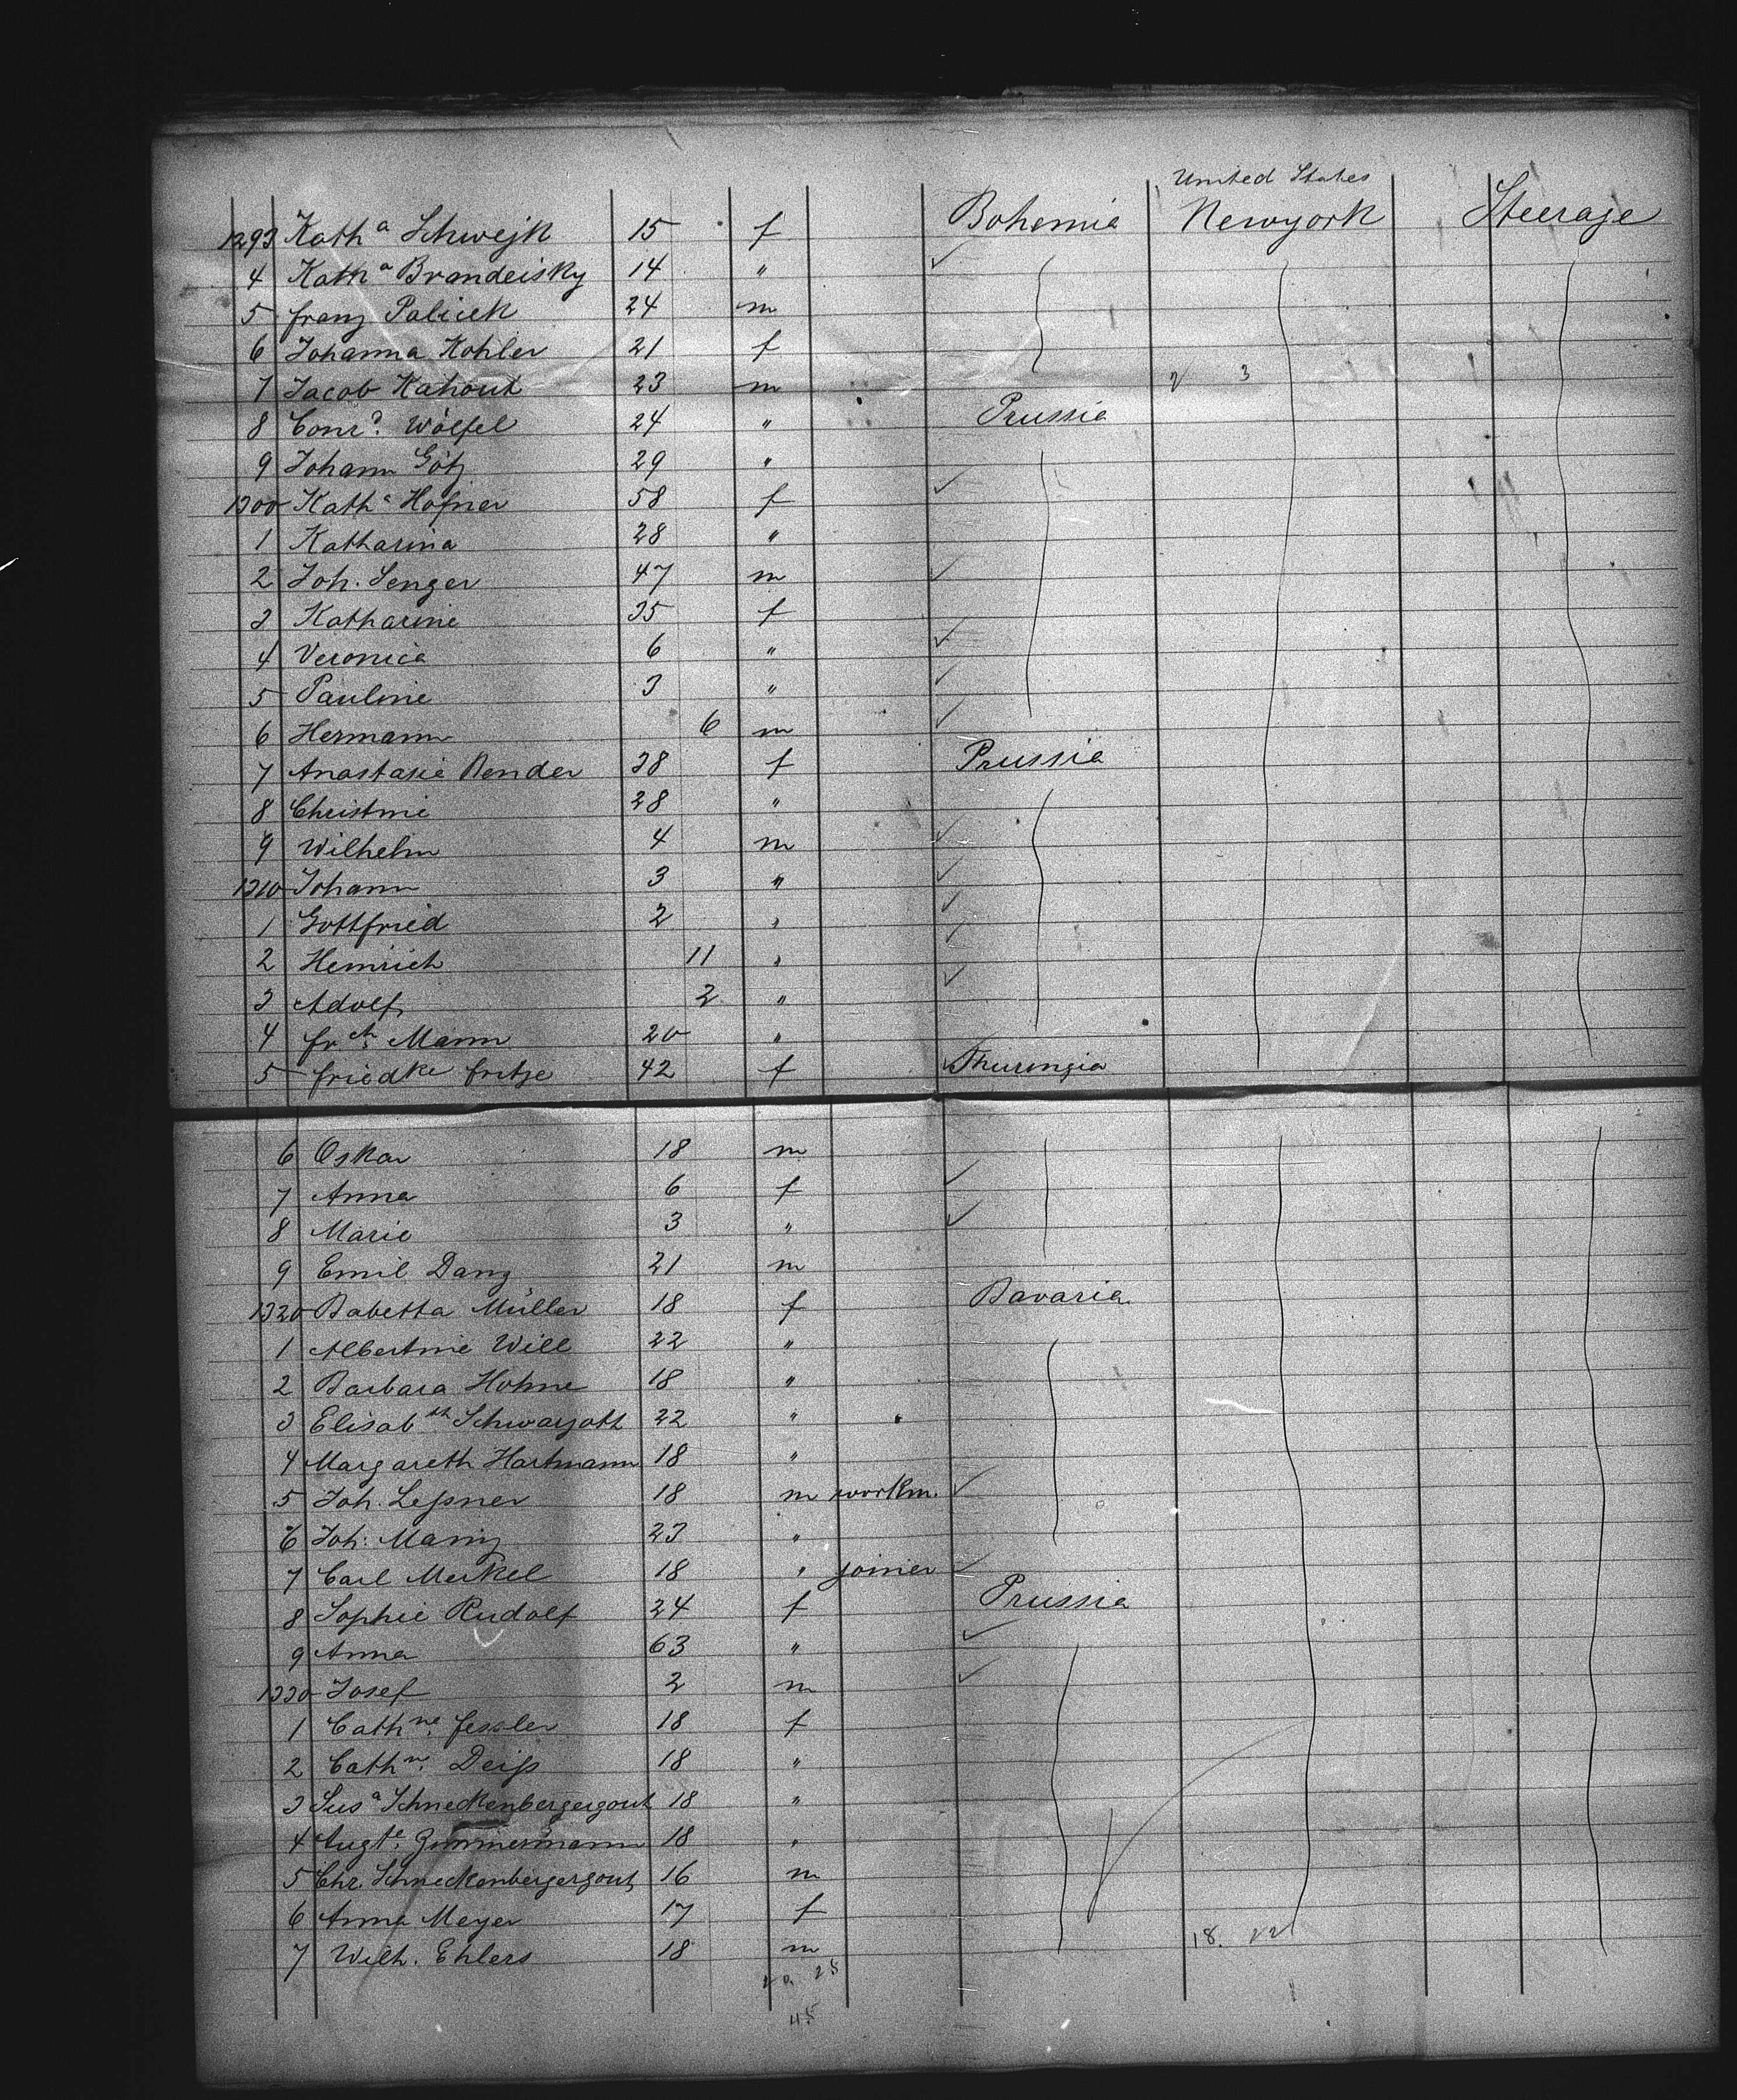 United States
1293 Kath a Schwejk 15 f Bohemia Newyork Steerage
4 Kath a Brandeisky 14 "
5 franz Palicek 24 m
6 Johanna Kohler 21 f
7 Jacob Kahout 23 m 2 3
8 Conr d. Wölfel 24 " Prussia
9 Johann Götz 29 "
1300 Kath a Hofner 58 f
1 Katharina 28 "
2 Joh. Senger 47 m
3 Katharine 35 f
4 Veronica 6 "
5 Pauline 3 "
6 Hermann 6 m
7 Anastasie Bender 38 f Prussia
8 Christine 28 "
9 Wilhelm 4 m
1310 Johann 3 "
1 Gottfried 2 "
2 Heinrich 11 "
3 Adolf 2 "
4 fr ch. Mann 20 "
5 friedke fritze 42 f Thuringia
6 Oskar 18 m
7 Anna 6 f
8 Marie 3 "
9 Emil Danz 21 m
1320 Babetta Müller 18 f Bavaria
1 Albertine Will 22 "
2 Barbara Hohne 18 "
3 Elisab th. Schwarzott 22 "
4 Margareth Hartmann 18 "
5 Joh. Leßner 18 m workm.
6 Joh. Manz 23 "
7 Carl Merkel 18 " joiner
8 Sophie Rudolf 24 f Prussia
9 Anna 63 "
1330 Josef 2 m
1 Cath ne. fessler 18 f
2 Cath ne. Deiß 18 "
3 Sus a Schneckenbergergout 18 "
4 Augte. Zimmermann 18 "
5 Chr. Schneckenbergergout 16 m
6 Anna Meyer 17 f
7 Wilh. Ehlers 18 m 18. 22
45